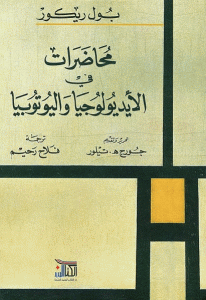 بول ريكور
محاضرات
في
الأيديولوجيا واليوتوبيا
تحرير وتقديم
جورج ه. تيلور
ترجمة
فلاح رحيم